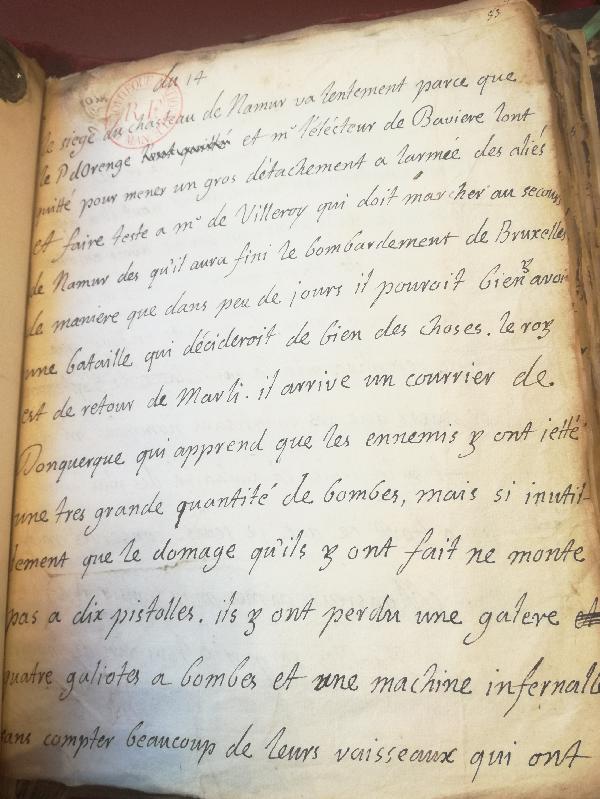 83
du 14
le siege du chasteau de Namur va lentement parce que
le P dOrenge et mr l'électeur de Baviere lont
quitté pour mener un gros détachement a larmée des aliés
et faire teste a mr de Villeroy qui doit marcher au secours
de Namur des qu'il aura fini le bombardement de Bruxelles
de maniere que dans peu de jours il pouroit bien y avoir
une bataille qui décideroit de bien des choses. le roy
est de retour de Marli. il arrive un courrier de
Donquerque qui apprend que les ennemis y ont jetté
une tres grande quantité de bombes, mais si inutil-
lement que le domage qu'ils y ont fait ne monte
pas a dix pistolles. ils y ont perdu une galere
quatre galiotes a bombes et une machine infernalle
sans compter beaucoup de leurs vaisseaux qui ont